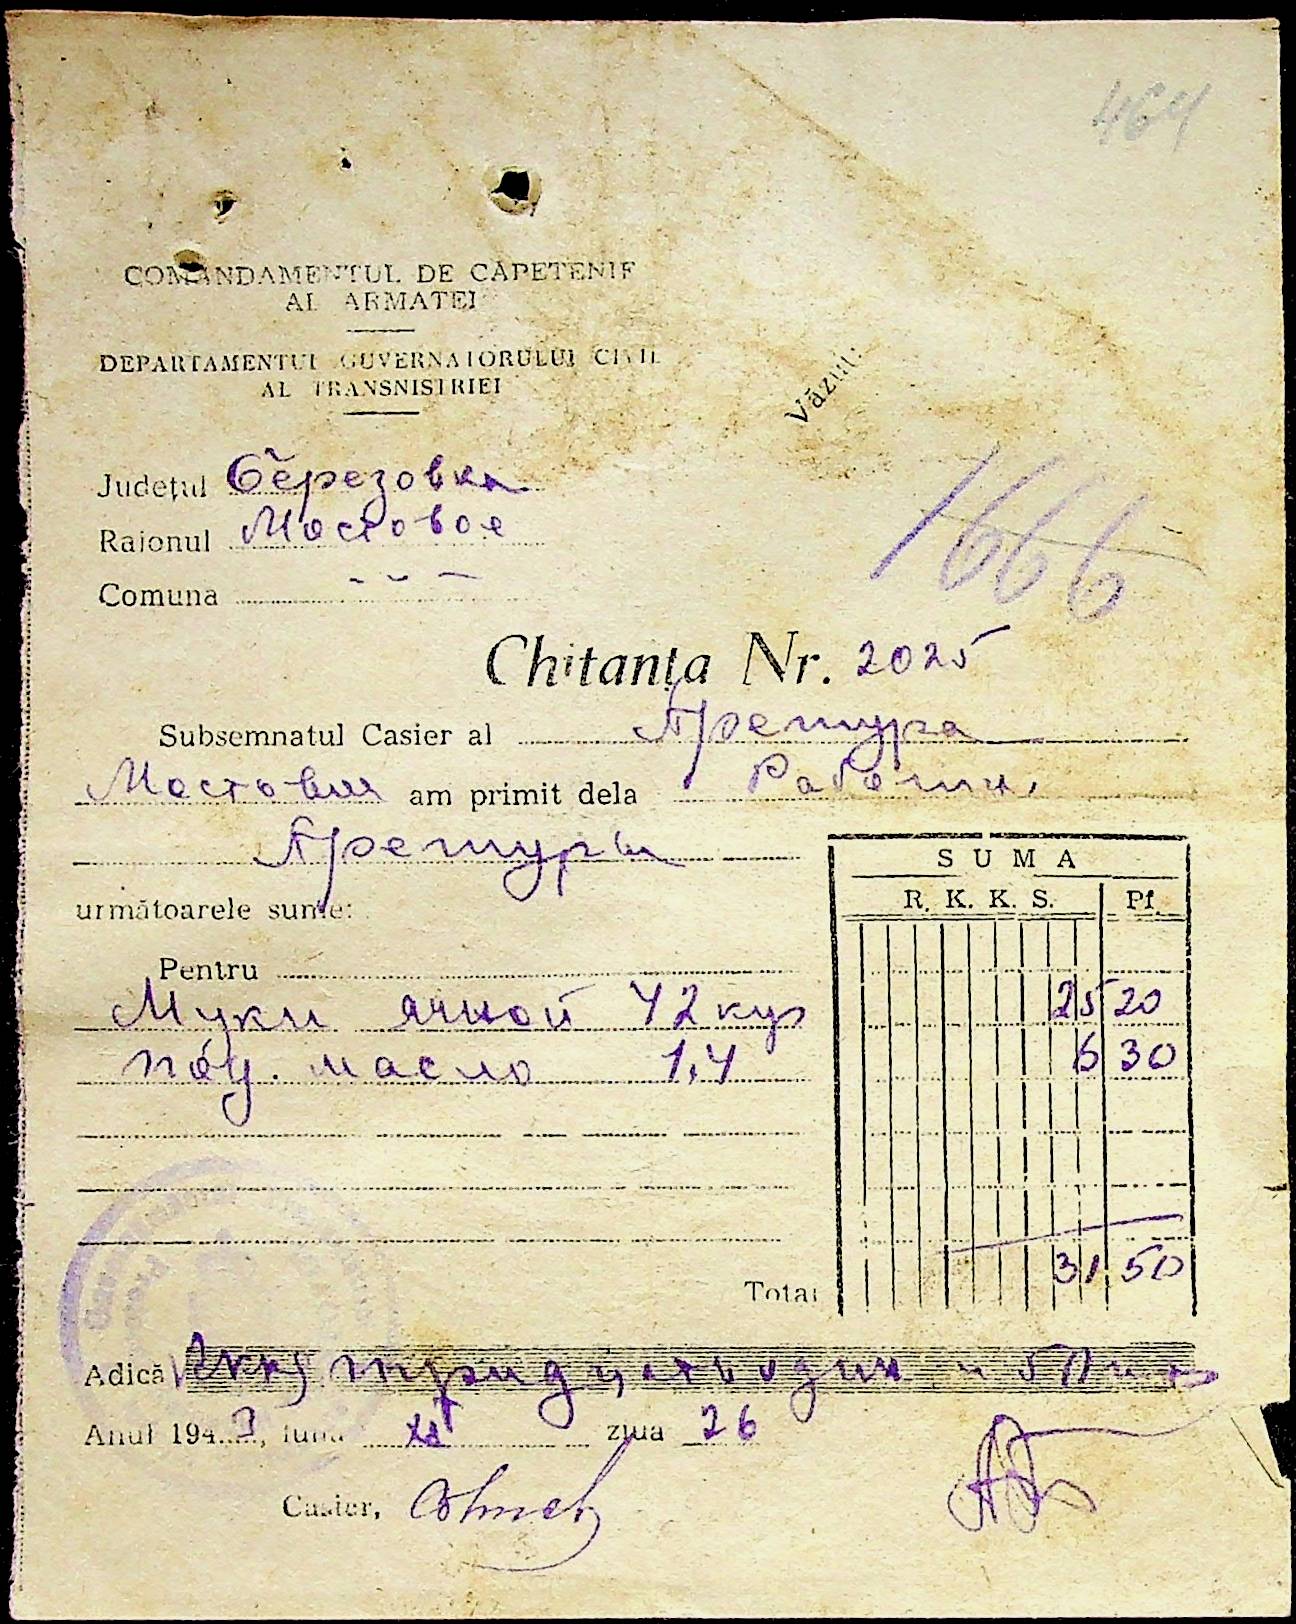 464
COMANDAMENTUL DE CĂPETENIE
AL ARMATEI
DEPARTAMENTUL GUVERNATORULUI CIVIL
AL TRANSNISTRIEI
Văzut:
Județul Березовка
Raionul Мостовое
Comuna - - -
1666
Chitanța Nr. 2025
Subsemnatul Casier al Претура
Мостовая am primit dela Рабочих
Претуры
următoarele sume:
SUMA
R. K. K. S. Pf.
Pentru
Муки ячной 42 25 20
под. масло 1,4 6 30
Total 31 50
Adică тридцать один и 50
Anul 194 , luna XI ziua 26
Casier,